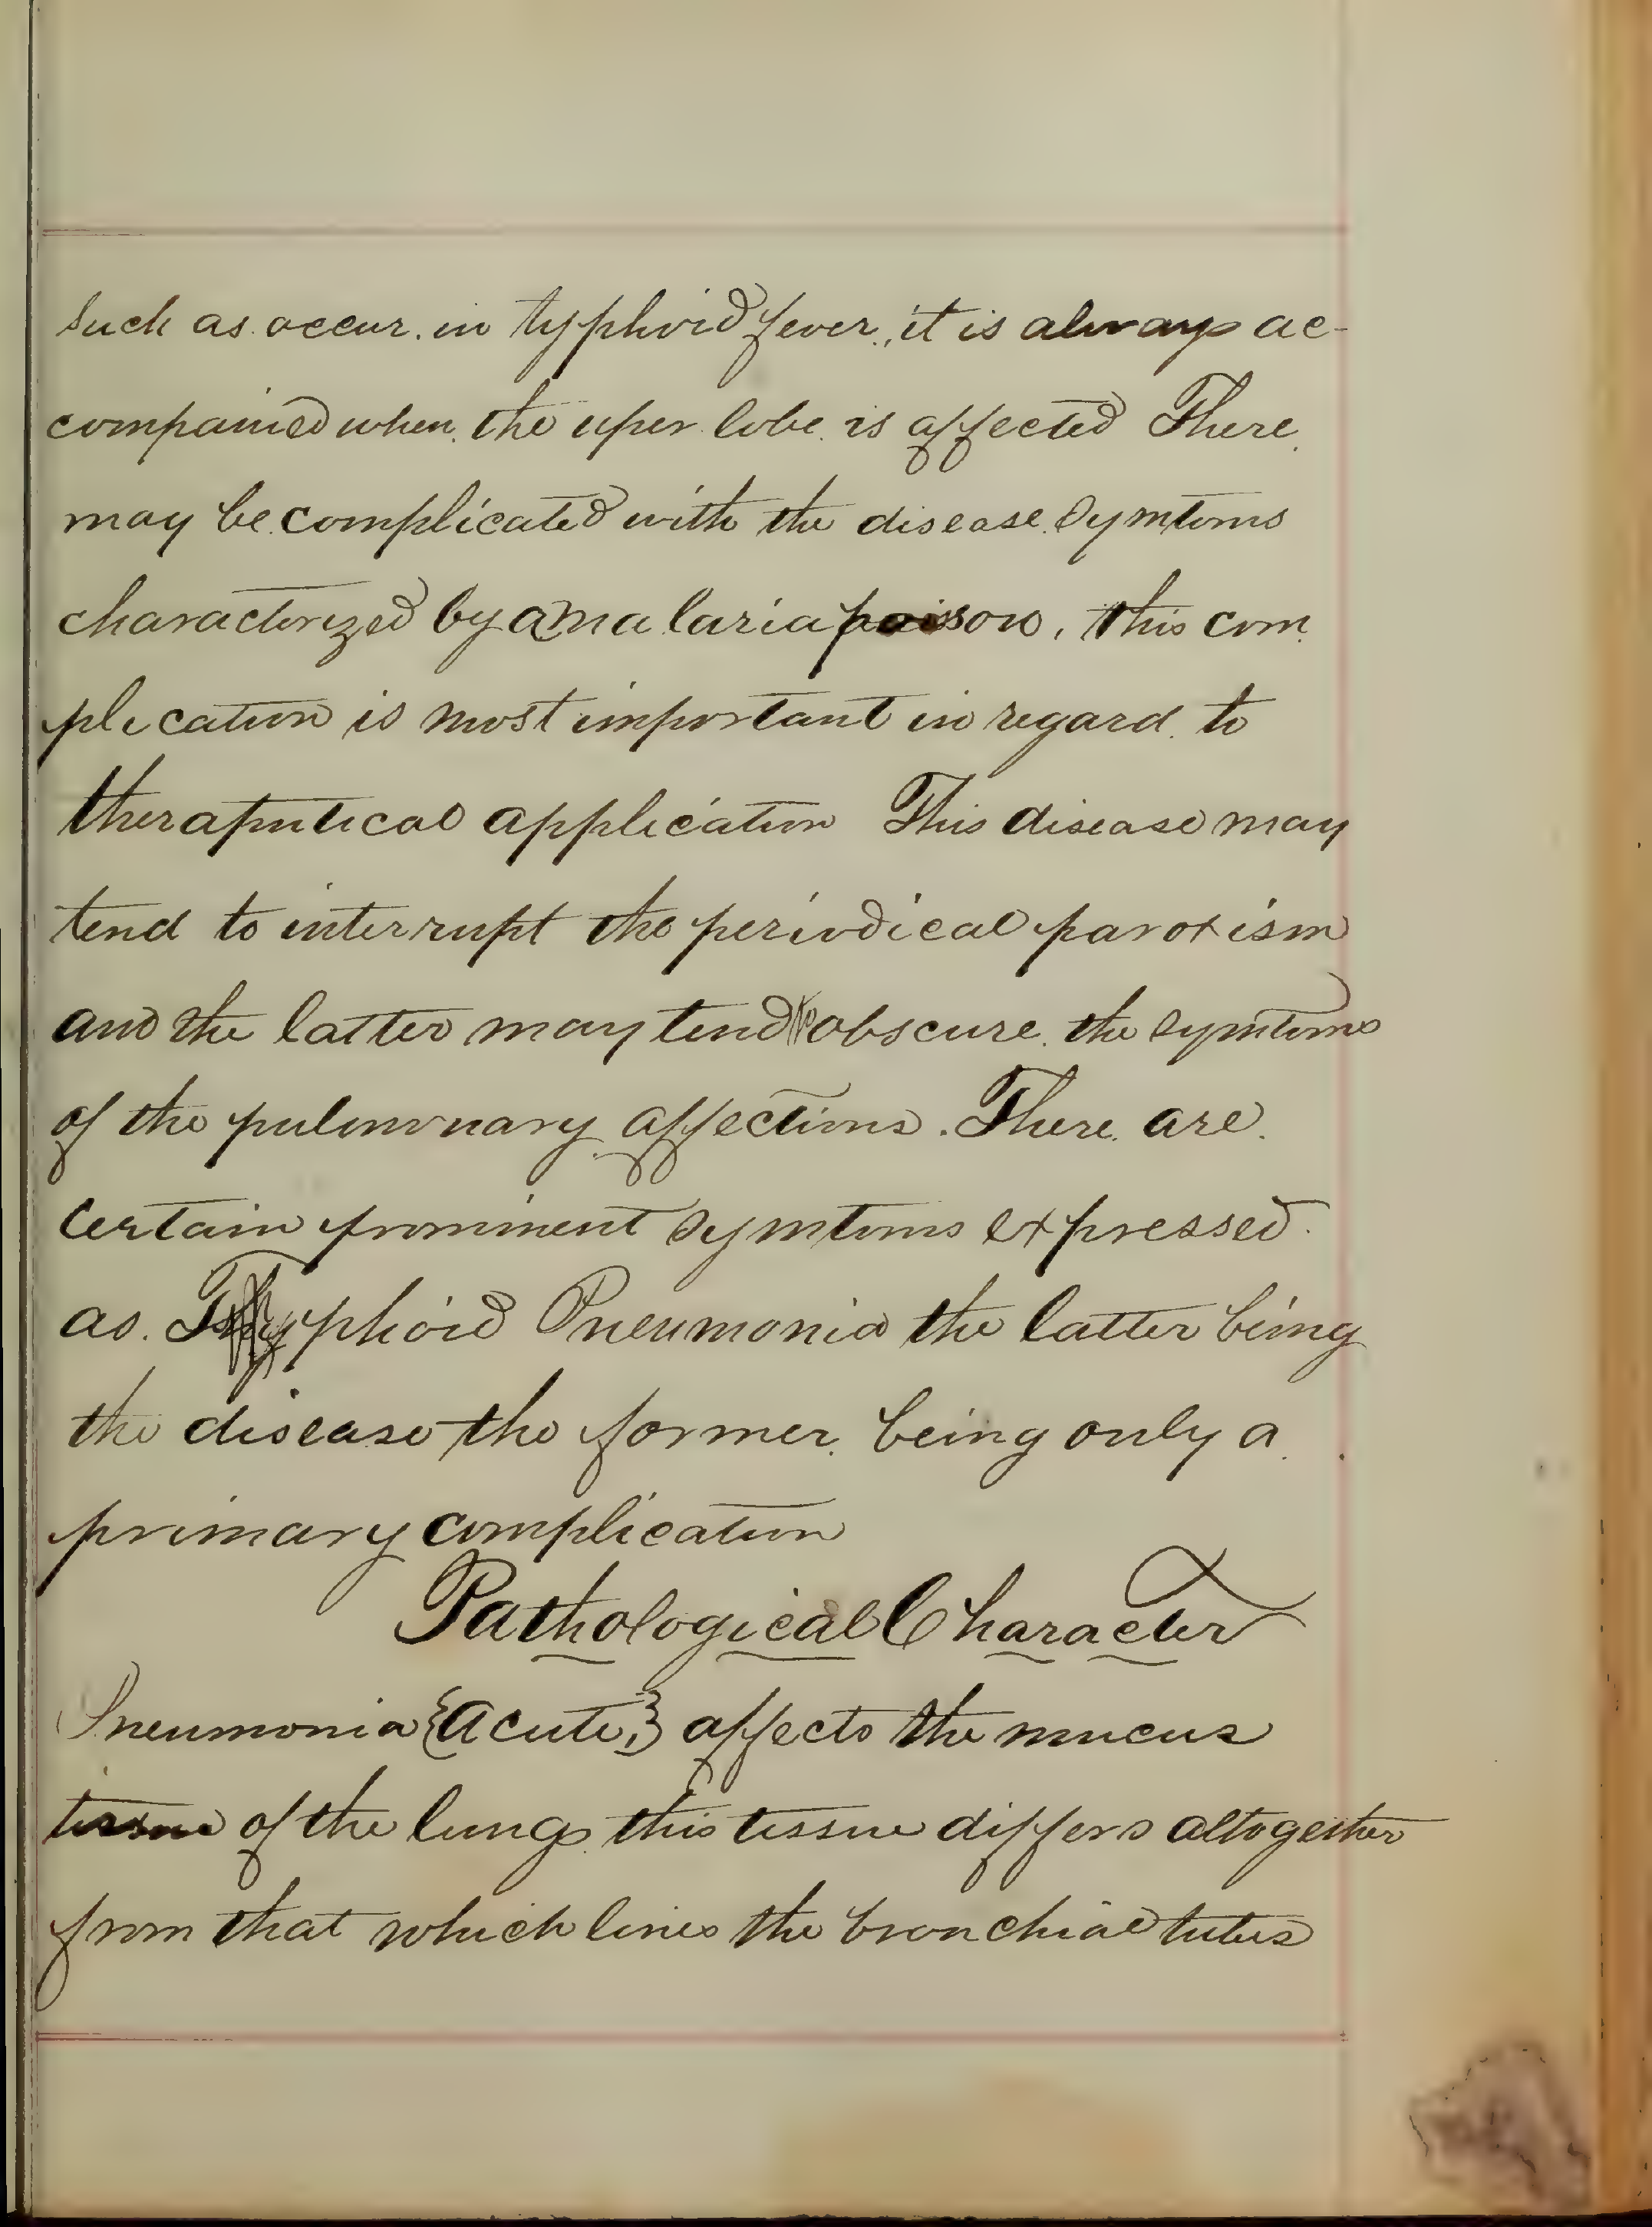 such as occur in typhoid fever, it is always ac-
companied when the uper lobe is affected There
may be complicated with the disease symtoms
characterized by a malaria poison, this com
plication is most important in regard to
theraputical application This disease may
tend to interrupt the periodical parotism
and the latter may tend to obscure the symtoms
of the pulmonary affections. There are
certain prominent symtoms expressed
as Typhoid Pneumonia the latter being
the disease the former being only a
primary complication
Pathological Character
Pneumonia {Acute,} affects the mucus
tissue of the lungs this tissue differs altogether
from that which lines the bronchial tubes